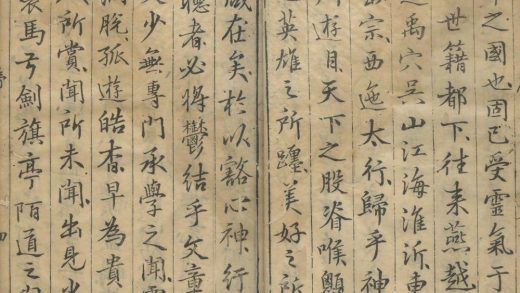 之國也固已受靈氣于
世籍都下往来燕越
禹穴吳山江海淮沂東
宗西迤太行歸乎神
遊目天下之股脊喉
英雄之所躔美好之所
咸在矣於以豁心神行
聽者必將鬱結乎文章
少無專門承學之聞
脫孤遊皓杳早為貴
所賞聞所未聞出見少
裘馬弓劍旗亭陌道之